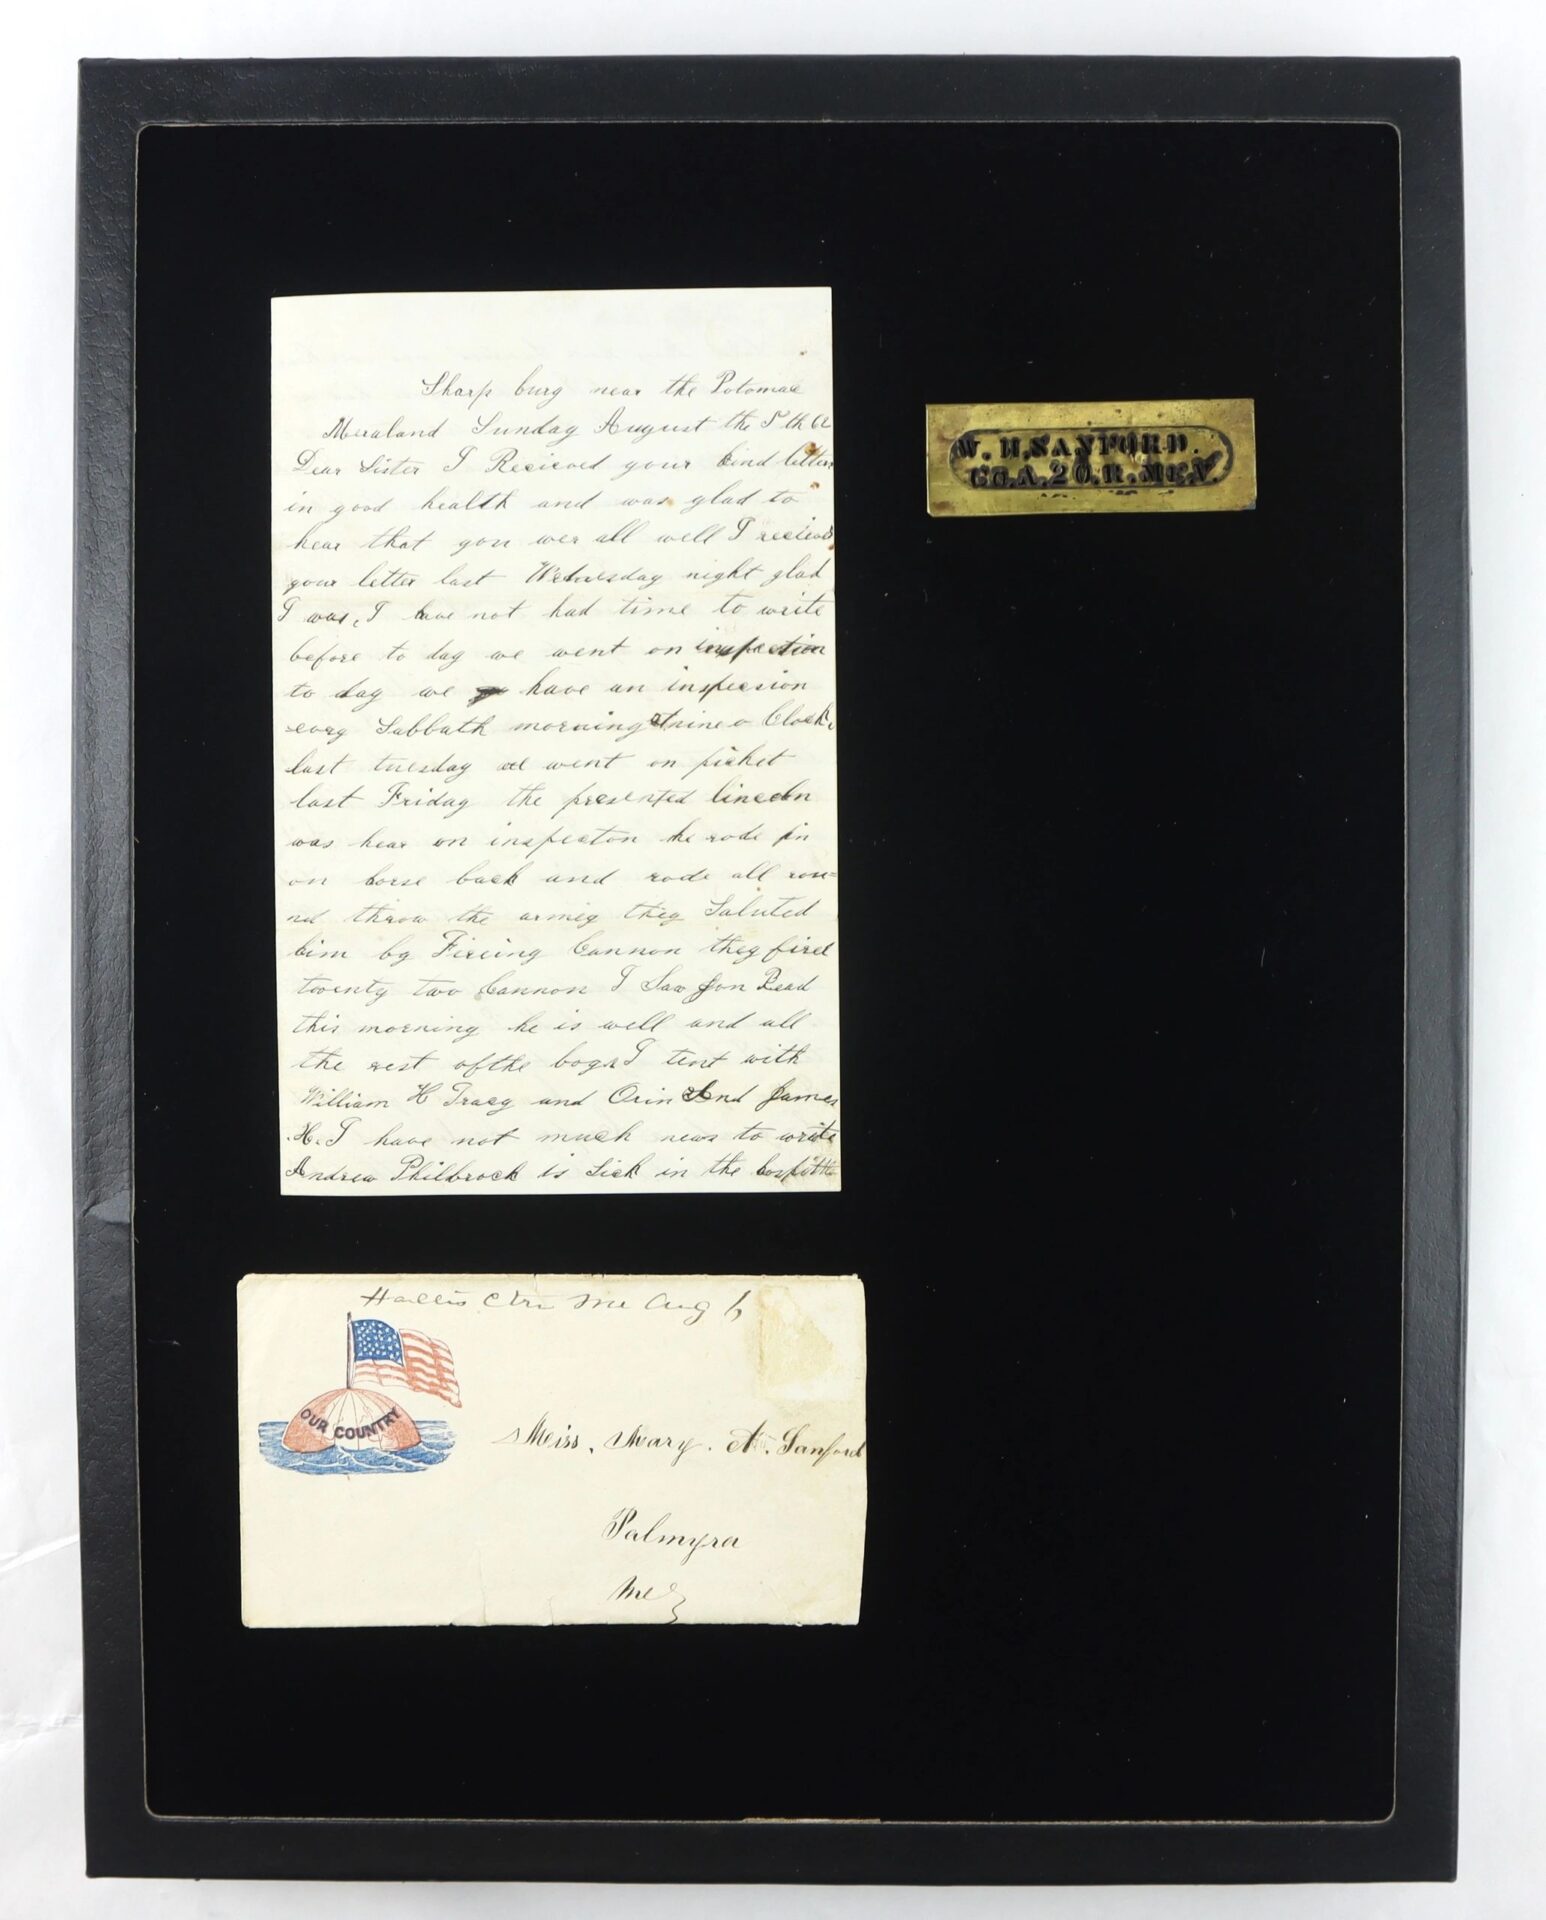 Sharp burg near the Potomac
Meraland Sunday August the 5th 62
Dear Sister I Recieved your kind letter
in good health and was glad to
hear that you wer all well I recieved
your letter last Wednesday night glad
I was, I have not had time to write
before to day we went on inspection
to day we have an inspecsion
evry Sabbath morning at nine o Clock.
last tuesday we went on picket
last Friday the presented lincoln
was hear on inspecton he rode in
on horse back and rode all rou=
nd throw the armey they Saluted
him by Fireing Cannon they fired
twenty two Cannon I Saw Jon Read
this morning he is well and all
the rest of the boys I tent with
William H Tracy and Orin and James
H. I have not much news to write
Andrew Philbrock is Sick in the
W. H. SANFORD.
CO. A. 20. R. ME. V.
Me Aug 6
OUR COUNTRY
Miss. Mary. A. Sanford
Palmyra
Me